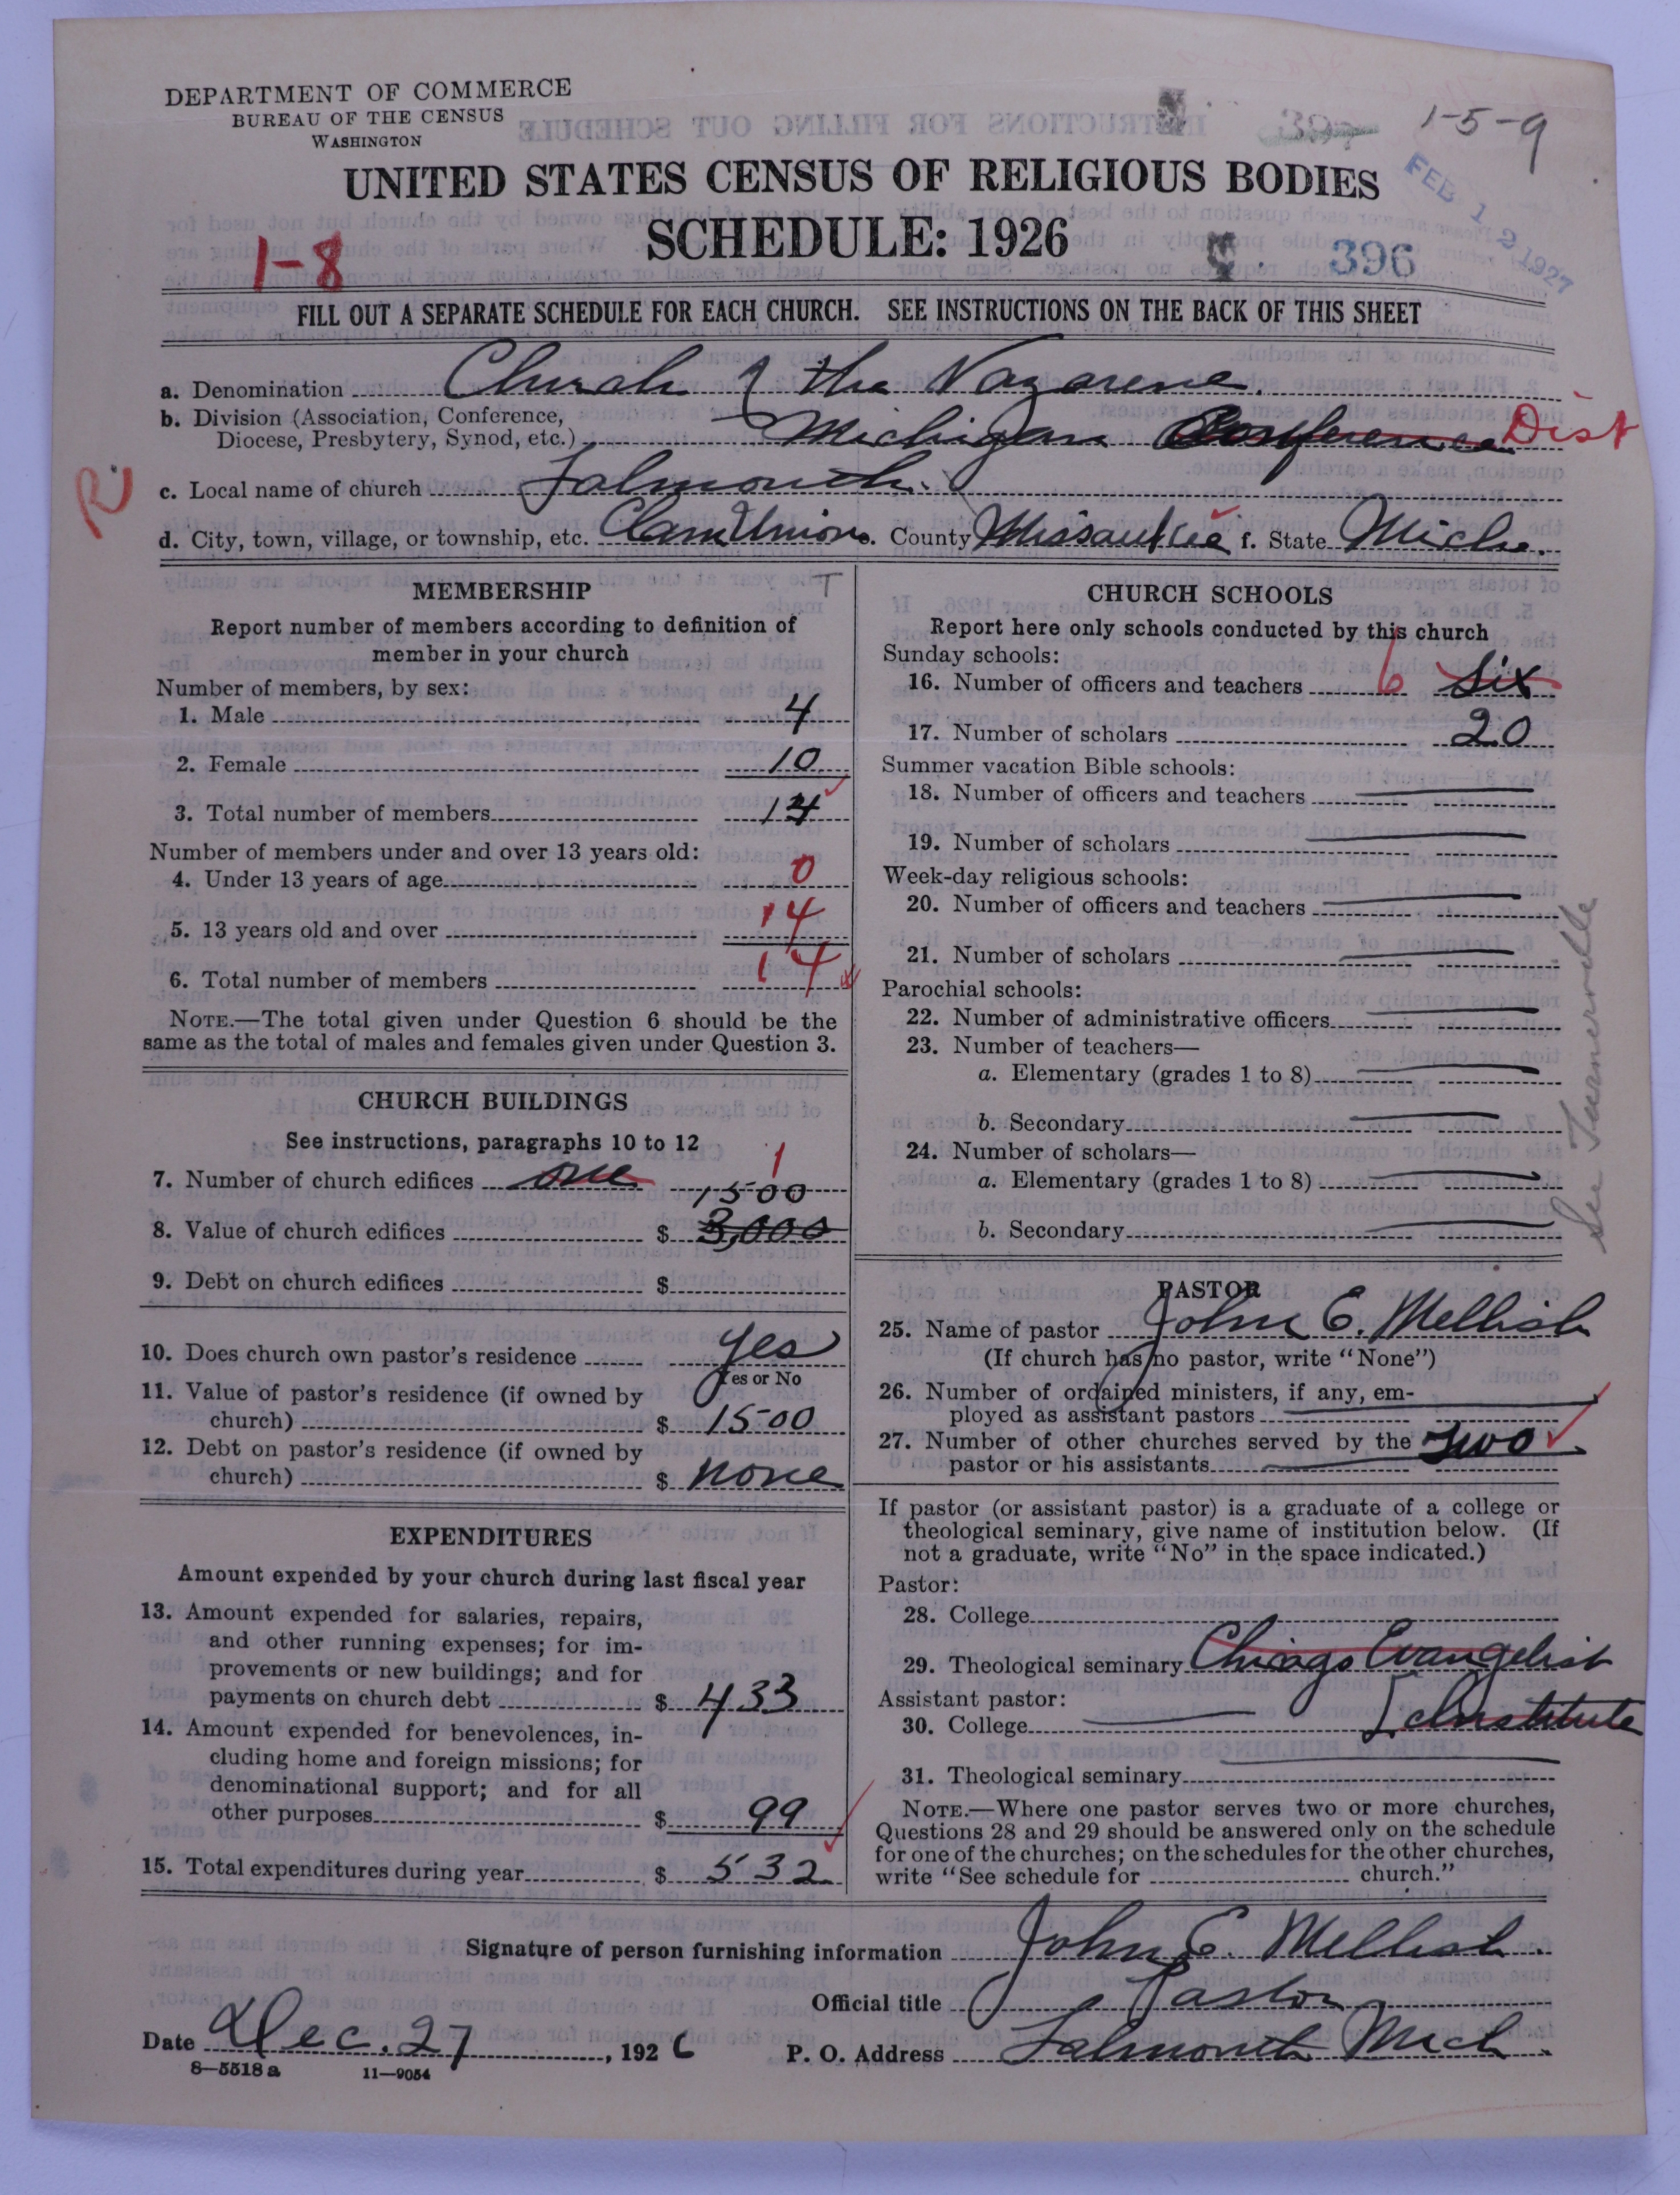 DEPARTMENT OF COMMERCE
BUREAU OF THE CENSUS
WASHINGTON
1-5-9
UNITED STATES CENSUS OF RELIGIOUS BODIES
SCHEDULE: 1926
FEB 12 1927
1-8
396
FILL OUT A SEPARATE SCHEDULE FOR EACH CHURCH. SEE INSTRUCTIONS ON THE BACK OF THIS SHEET
a. Denomination Church of the Nazarene.
b. Division (Association, Conference,
Diocese, Presbytery, Synod, etc.) Michigan Conference Dist
R
c. Local name of church Falmouth.
d. City, town, village, or township, etc. Clam Union e. County Missaukee f. State Mich.
MEMBERSHIP
T
Report number of members according to definition of
member in your church
Number of members, by sex:
1. Male 4
2. Female 10
3. Total number of members 14
Number of members under and over 13 years old:
4. Under 13 years of age 0
5. 13 years old and over 14
6. Total number of members 14
NOTE.—The total given under Question 6 should be the
same as the total of males and females given under Question 3.
CHURCH BUILDINGS
See instructions, paragraphs 10 to 12
7. Number of church edifices one 1
1500
8. Value of church edifices $ 3,000
9. Debt on church edifices $
10. Does church own pastor's residence yes
Yes or No
11. Value of pastor's residence (if owned by
church) $ 1500
12. Debt on pastor's residence (if owned by
church) $ none
EXPENDITURES
Amount expended by your church during last fiscal year
13. Amount expended for salaries, repairs,
and other running expenses; for im-
provements or new buildings; and for
payments on church debt $ 433
14. Amount expended for benevolences, in-
cluding home and foreign missions; for
denominational support; and for all
other purposes $ 99
15. Total expenditures during year $ 532
CHURCH SCHOOLS
Report here only schools conducted by this church
Sunday schools:
16. Number of officers and teachers 6 Six
17. Number of scholars 20
Summer vacation Bible schools:
18. Number of officers and teachers
19. Number of scholars
Week-day religious schools:
20. Number of officers and teachers
21. Number of scholars
Parochial schools:
22. Number of administrative officers
23. Number of teachers—
a. Elementary (grades 1 to 8)
b. Secondary
24. Number of scholars—
a. Elementary (grades 1 to 8)
b. Secondary
See Turnerville
PASTOR
25. Name of pastor John E. Mellish
(If church has no pastor, write "None")
26. Number of ordained ministers, if any, em-
ployed as assistant pastors
27. Number of other churches served by the two
pastor or his assistants
If pastor (or assistant pastor) is a graduate of a college or
theological seminary, give name of institution below. (If
not a graduate, write "No" in the space indicated.)
Pastor:
28. College
29. Theological seminary Chicago Evangelist
Institute
Assistant pastor:
30. College
31. Theological seminary
NOTE.—Where one pastor serves two or more churches,
Questions 28 and 29 should be answered only on the schedule
for one of the churches; on the schedules for the other churches,
write "See schedule for church."
Signature of person furnishing information John E. Mellish.
Official title Pastor
Date Dec. 27, 1926 P. O. Address Falmouth Mich.
8—5518a 11—9054